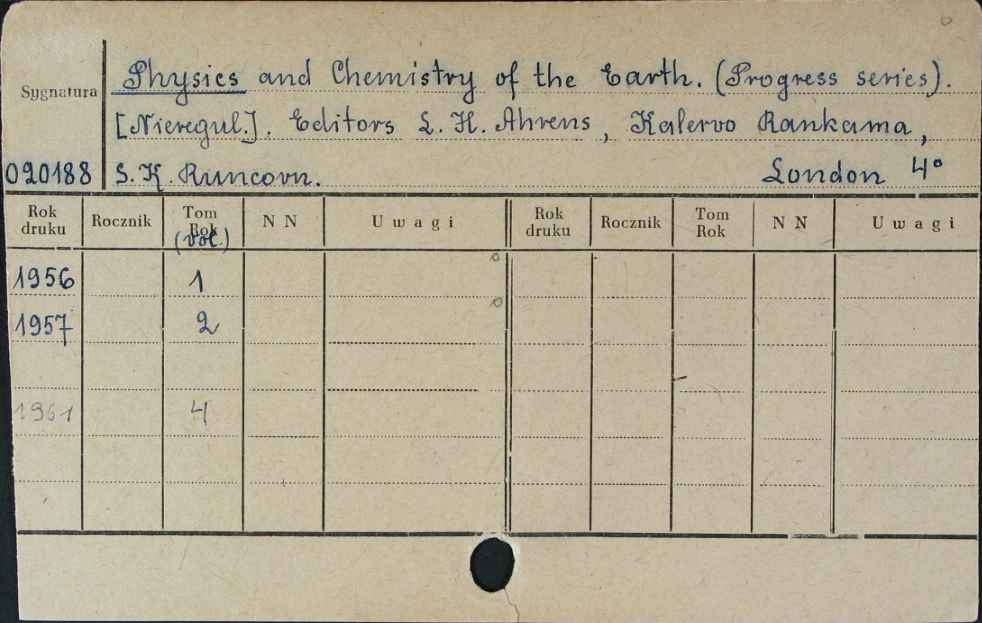 Sygnatura
Physics and Chemistry of the Earth. (Progress series).
[Nieregul.]. Editors L. H. Ahrens, Kalervo Rankama,
020188 S. K. Runcovn. London 4°
Rok druku Rocznik Tom Rok (vol.) N N Uwagi Rok druku Rocznik Tom Rok N N Uwagi
1956 1
1957 2
1961 4